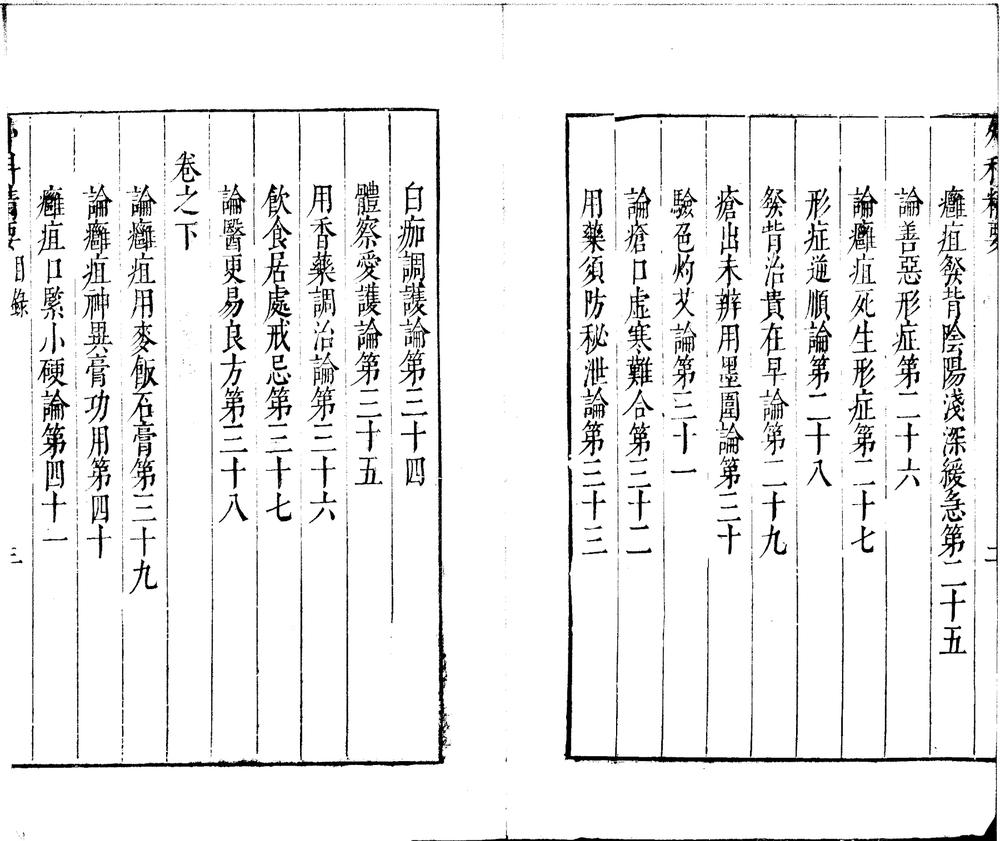 外科精要
二
癰疽發背陰陽淺深緩急第二十五
論善惡形症第二十六
論癰疽死生形症第二十七
形症逆順論第二十八
發背治貴在早論第二十九
瘡出未辨用墨圍論第三十
驗色灼艾論第三十一
論瘡口虛寒難合第三十二
用藥須防秘泄論第三十三
自痂調護論第三十四
體察愛護論第三十五
用香藥調治論第三十六
飲食居處戒忌第三十七
論醫更易良方第三十八
卷之下
論癰疽用麥飯石膏第三十九
論癰疽神異膏功用第四十
癰疽口緊小硬論第四十一
外科精要 目錄
三